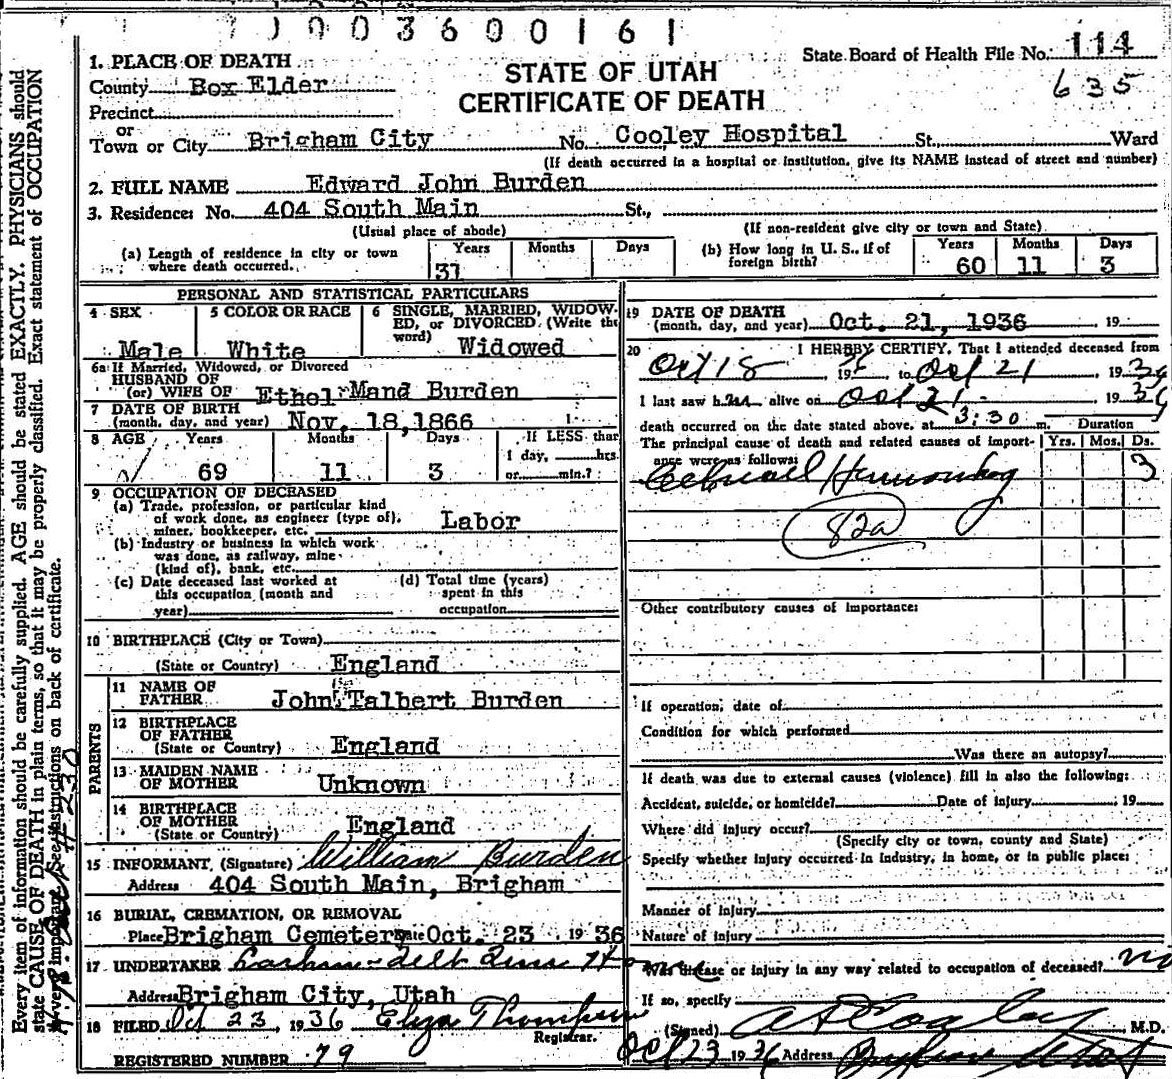 1003600161
State Board of Health File No. 114
635
STATE OF UTAH
CERTIFICATE OF DEATH
1. PLACE OF DEATH
County Box Elder
Precinct
or
Town or City Brigham City No. Cooley Hospital St., Ward
(If death occurred in a hospital or institution, give its NAME instead of street and number)
2. FULL NAME Edward John Burden
3. Residence: No. 404 South Main St.,
(Usual place of abode) (If non-resident give city or town and State)
(a) Length of residence in city or town where death occurred. Years 31 Months Days
(b) How long in U. S., if of foreign birth? Years 60 Months 11 Days 3
PERSONAL AND STATISTICAL PARTICULARS
4 SEX Male
5 COLOR OR RACE White
6 SINGLE, MARRIED, WIDOWED, or DIVORCED (Write the word) Widowed
6a If Married, Widowed, or Divorced
HUSBAND OF
(or) WIFE OF Ethel Mand Burden
7 DATE OF BIRTH
(month, day, and year) Nov. 18, 1866
8 AGE Years 69 Months 11 Days 3 If LESS than
1 day, hrs.
or min.?
9 OCCUPATION OF DECEASED
(a) Trade, profession, or particular kind
of work done, as engineer (type of),
miner, bookkeeper, etc. Labor
(b) Industry or business in which work
was done, as railway, mine
(kind of), bank, etc.
(c) Date deceased last worked at
this occupation (month and
year)
(d) Total time (years)
spent in this
occupation
10 BIRTHPLACE (City or Town)
(State or Country) England
PARENTS
11 NAME OF
FATHER John Talbert Burden
12 BIRTHPLACE
OF FATHER
(State or Country) England
13 MAIDEN NAME
OF MOTHER Unknown
14 BIRTHPLACE
OF MOTHER
(State or Country) England
15 INFORMANT, (Signature) William Burden
Address 404 South Main, Brigham
16 BURIAL, CREMATION, OR REMOVAL
Place Brigham Cemetery Date Oct. 23 1936
17 UNDERTAKER
Address Brigham City, Utah
18 FILED Oct 23, 1936 Eliza Thompson
Registrar.
REGISTERED NUMBER 79
19 DATE OF DEATH
(month, day, and year) Oct. 21, 1936 , 19
20 I HEREBY CERTIFY, That I attended deceased from
Oct 18 19 to Oct 21 1936
I last saw him alive on Oct 21 1936
death occurred on the date stated above, at 3:30 m. Duration
The principal cause of death and related causes of importance were as follows: Yrs. Mos. Ds.
Cebrael Hemorrhag 3
82a
Other contributory causes of importance:
If operation, date of
Condition for which performed
Was there an autopsy?
If death was due to external causes (violence) fill in also the following:
Accident, suicide, or homicide? Date of injury ; 19
Where did injury occur?
(Specify city or town, county and State)
Specify whether injury occurred in industry, in home, or in public place:
Manner of injury
Nature of injury
Was disease or injury in any way related to occupation of deceased? no
If so, specify
(Signed) A D Cooley M.D.
Oct 23 1936 Address Brigham Utah
Every item of information should be carefully supplied. AGE should be stated EXACTLY. PHYSICIANS should
state CAUSE OF DEATH in plain terms, so that it may be properly classified. Exact statement of OCCUPATION
is very important. See instructions on back of certificate.